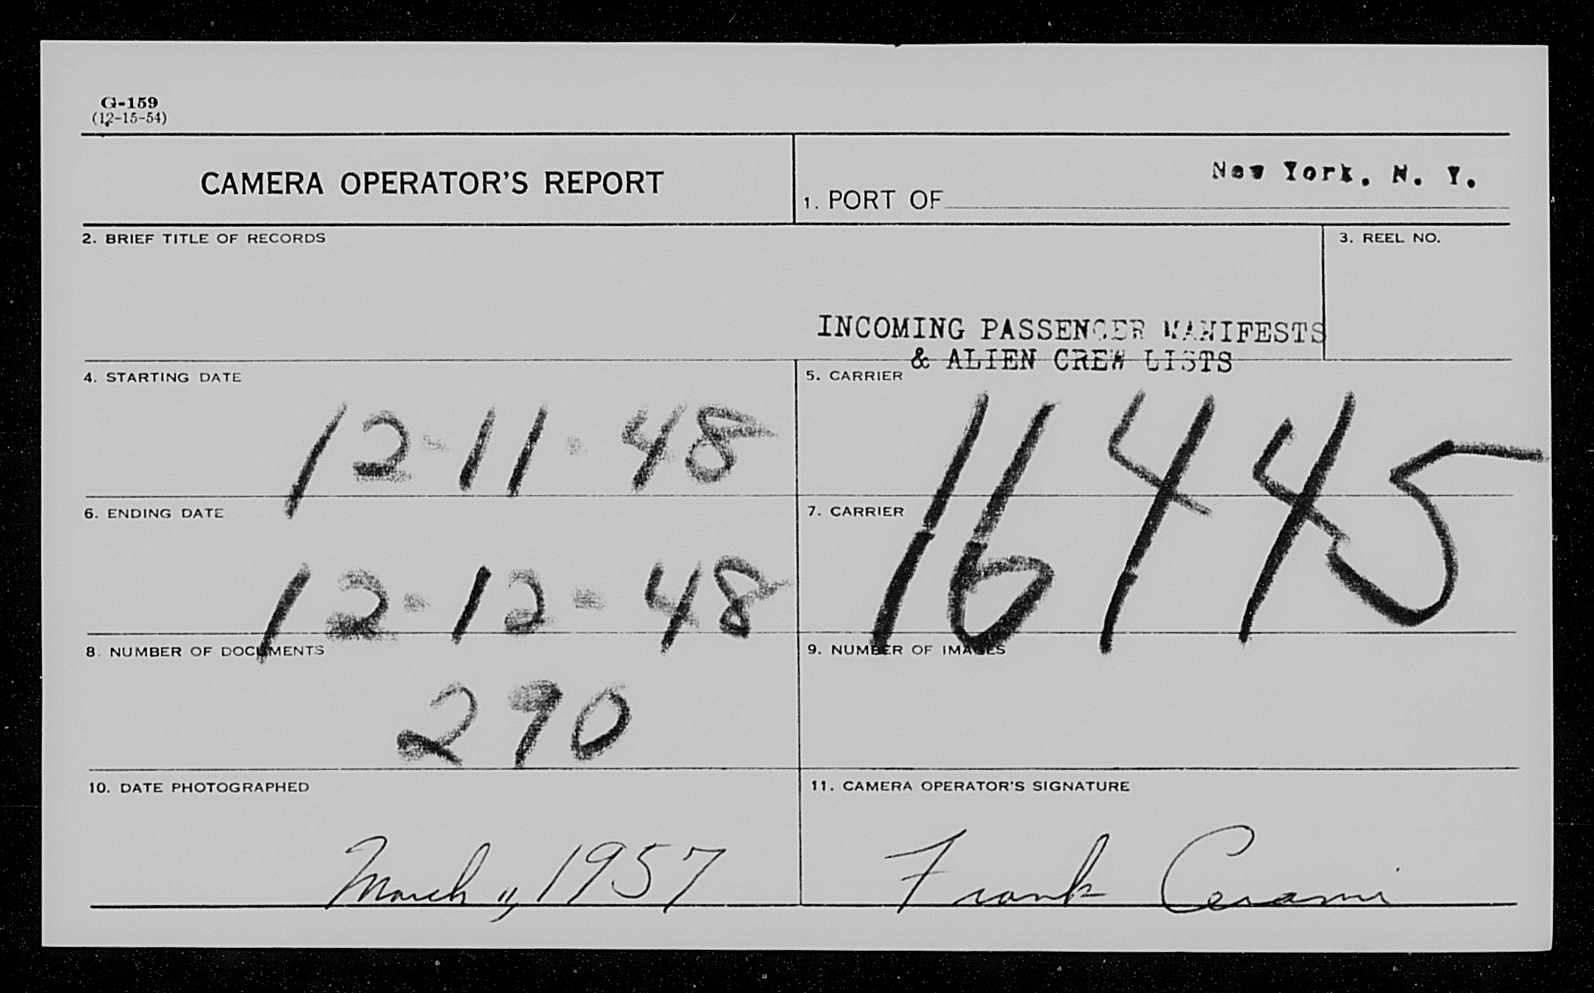 G-159
(12-15-54)
CAMERA OPERATOR'S REPORT
1. PORT OF New York, N. Y.
2. BRIEF TITLE OF RECORDS
3. REEL NO.
INCOMING PASSENGER MANIFESTS
& ALIEN CREW LISTS
4. STARTING DATE
12-11-48
5. CARRIER
16445
6. ENDING DATE
12-12-48
7. CARRIER
8. NUMBER OF DOCUMENTS
290
9. NUMBER OF IMAGES
10. DATE PHOTOGRAPHED
March 11, 1957
11. CAMERA OPERATOR'S SIGNATURE
Frank Cerami